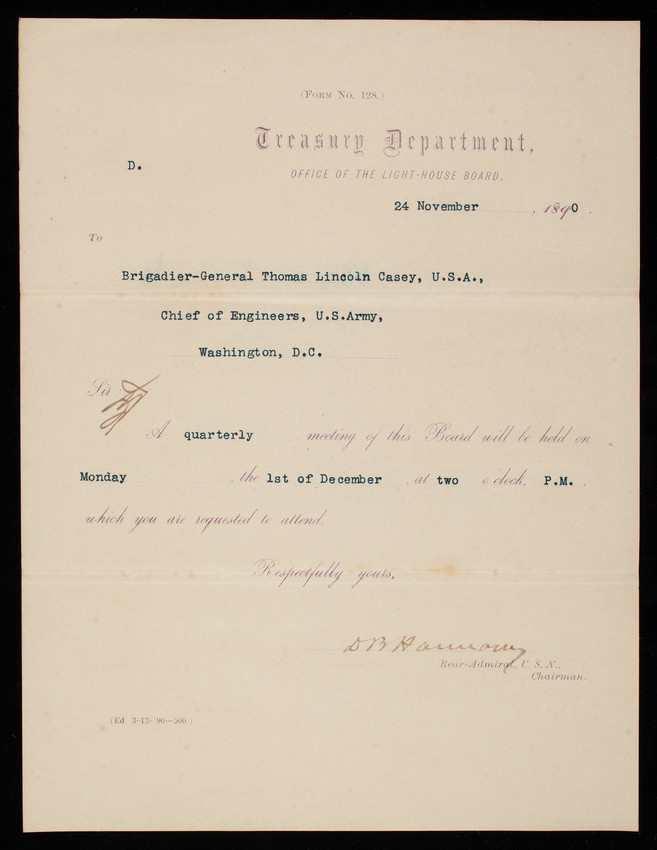 (Form No. 128.)
Treasury Department,
D.
OFFICE OF THE LIGHT-HOUSE BOARD.
24 November, 1890.
To
Brigadier-General Thomas Lincoln Casey, U.S.A.,
Chief of Engineers, U.S.Army,
Washington, D.C.
Sir
A quarterly meeting of this Board will be held on
Monday, the 1st of December, at two o'clock, P.M.,
which you are requested to attend.
Respectfully yours,
D B Harmony
Rear-Admiral, U. S. N.,
Chairman.
(Ed. 3-13-'90—500.)